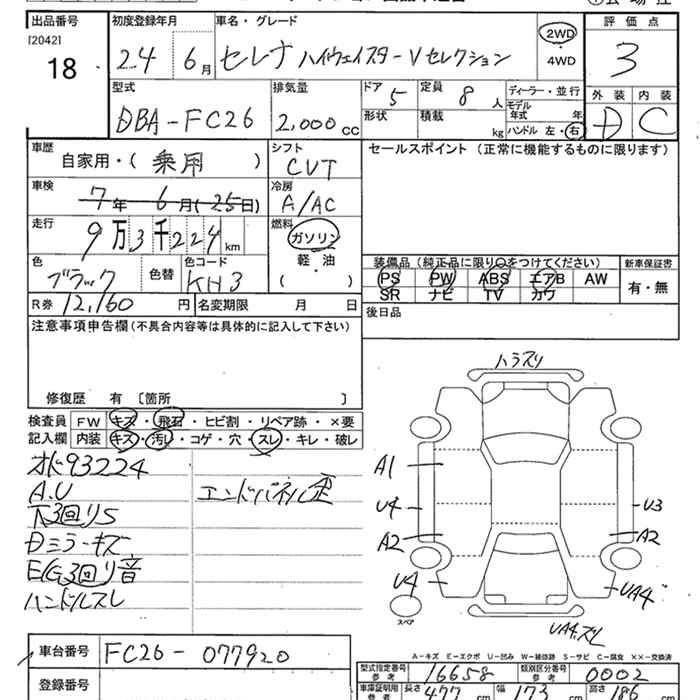 出品番号
[2042]
18
初度登録年月
24 6月
車名・グレード
セレナ ハイウェイスターVセレクション
2WD
4WD
評価点
3
外装 内装
D C
型式
DBA-FC26
排気量
2,000cc
ドア 5
定員 8人
形状
積載 kg
ディーラー・並行
モデル年式 年
ハンドル 左・右
車歴
自家用・(乗用)
シフト
CVT
セールスポイント(正常に機能するものに限ります)
車検
7年6月(25日)
冷房
A/AC
走行
9万3千224km
燃料
ガソリン
軽・油
( )
色
ブラック
色替
色コード
KH3
装備品(純正品に限り○をつけてください)
PS PW ABS エアB AW
SR ナビ TV カワ
新車保証書
有・無
R券 12,160円
名変期限 月 日
後日品
注意事項申告欄(不具合内容等は具体的に記入して下さい)
修復歴 有 〔箇所 〕
検査員 FW キズ・飛石・ヒビ割・リペア跡・×要
記入欄 内装 キズ・汚レ・コゲ・穴・スレ・キレ・破レ
オド93224
A.U
エンドパネル歪
下回りS
Dミラーキズ
EG3回り音
ハンドルスレ
ハラスリ
A1
U4
A2
U4
U3
A2
UA4
UA4.スリ
スペア
A-キズ E-エクボ U-凹み W-補修跡 S-サビ C-腐食 ××-交換済
車台番号
FC26-077920
登録番号
型式指定番号 参考 16658
類別区分番号 参考 0002
車庫証明用 参考 長さ 477cm 幅 173cm 高さ 186cm